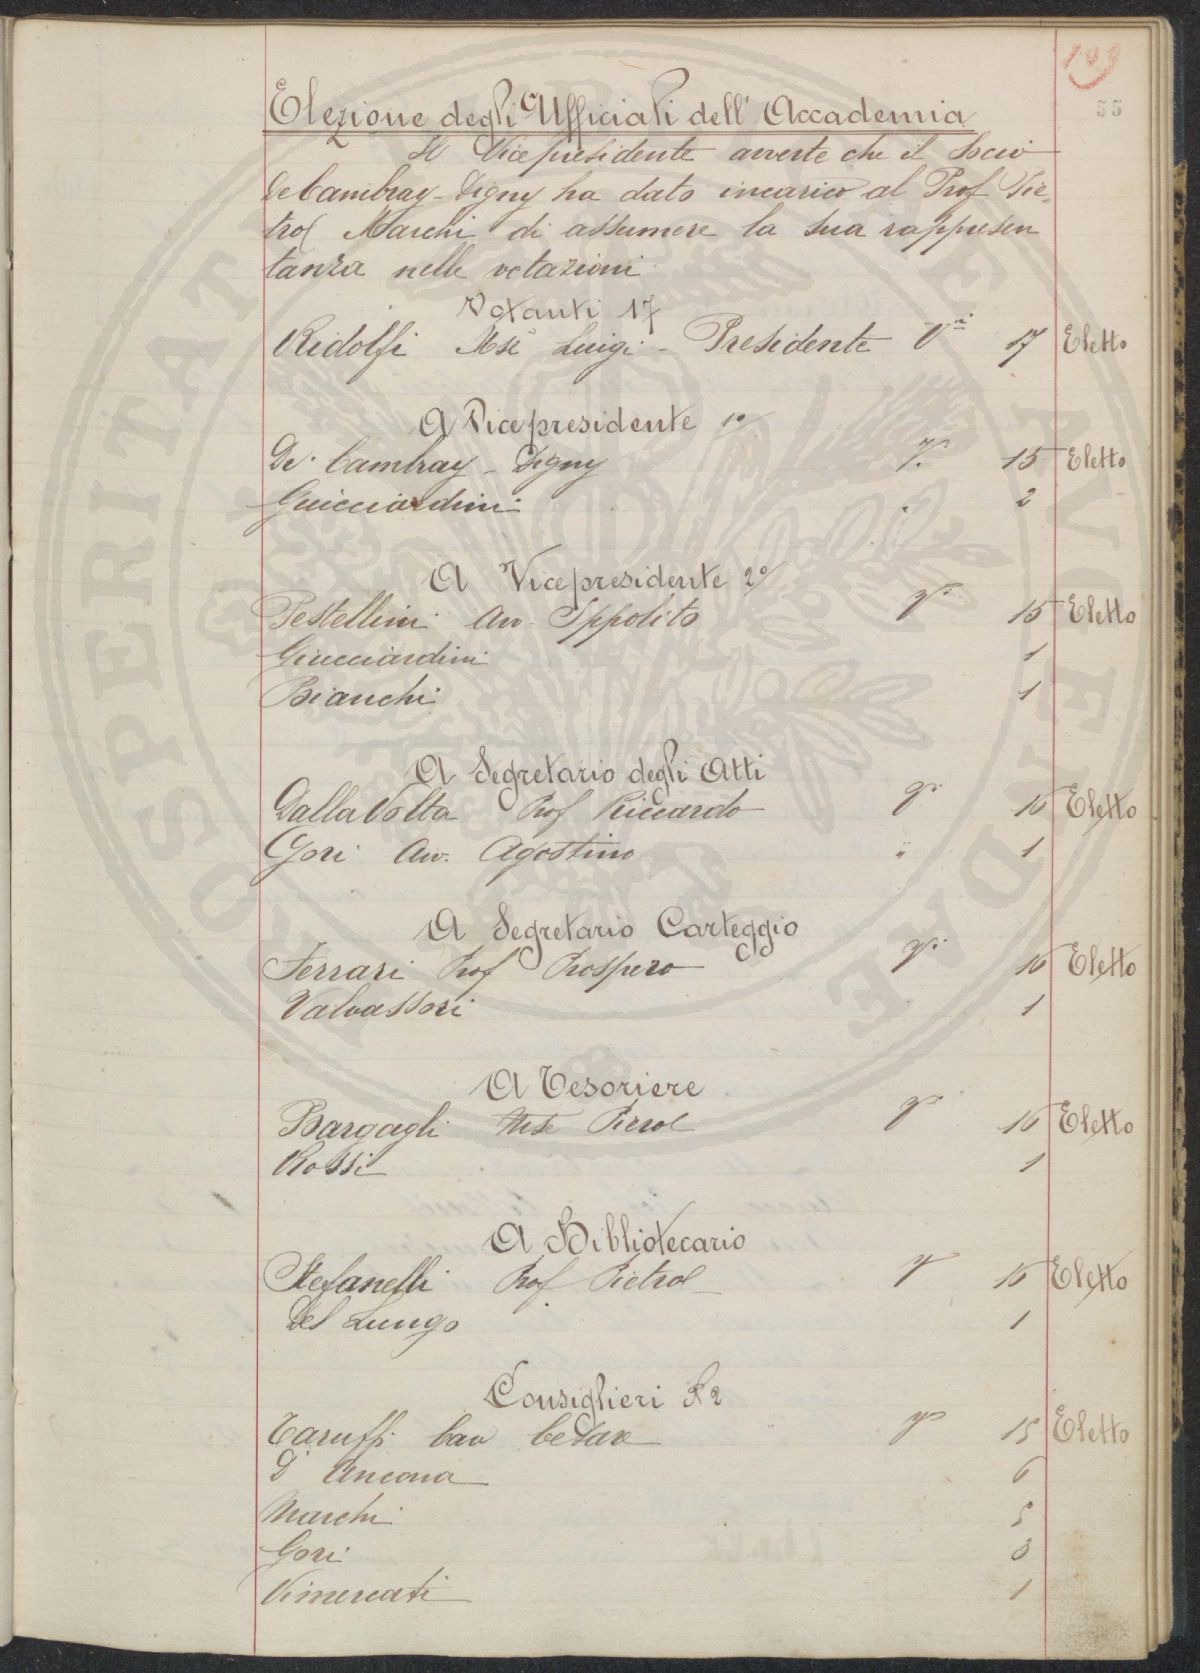 109
55
Elezione degli Ufficiali dell' Accademia
Il Vicepresidente averte che il Socio
De Cambray-Digny ha dato incarico al Prof Pie-
tro Marchi di assumere la sua rappresen
tanza nelle votazioni
Votanti 17
Ridolfi Mse Luigi - Presidente Vi 17 Eletto
A Vicepresidente 1º
De Cambray-Digny V. 15 Eletto
Guicciardini 2
A Vicepresidente 2º
Pestellini Av. Ippolito V. 15 Eletto
Giucciardini 1
Bianchi 1
A Segretario degli Atti
Dalla Volta Prof Riccardo V. 16 Eletto
Gori Av. Agostino " 1
A Segretario Carteggio
Ferrari Prof Prospero V. 16 Eletto
Valvassori 1
A Tesoriere
Bargagli Mse Piero V. 16 Eletto
Rossi 1
A Bibliotecario
Stefanelli Prof Pietro V 16 Eletto
Del Lungo 1
Consiglieri N 2
Taruffi Cav Cesare V 15 Eletto
D' Ancona 6
Marchi 5
Gori 3
Vimercati 1
PROSPERITATI PUBLICAE AUGENDAE